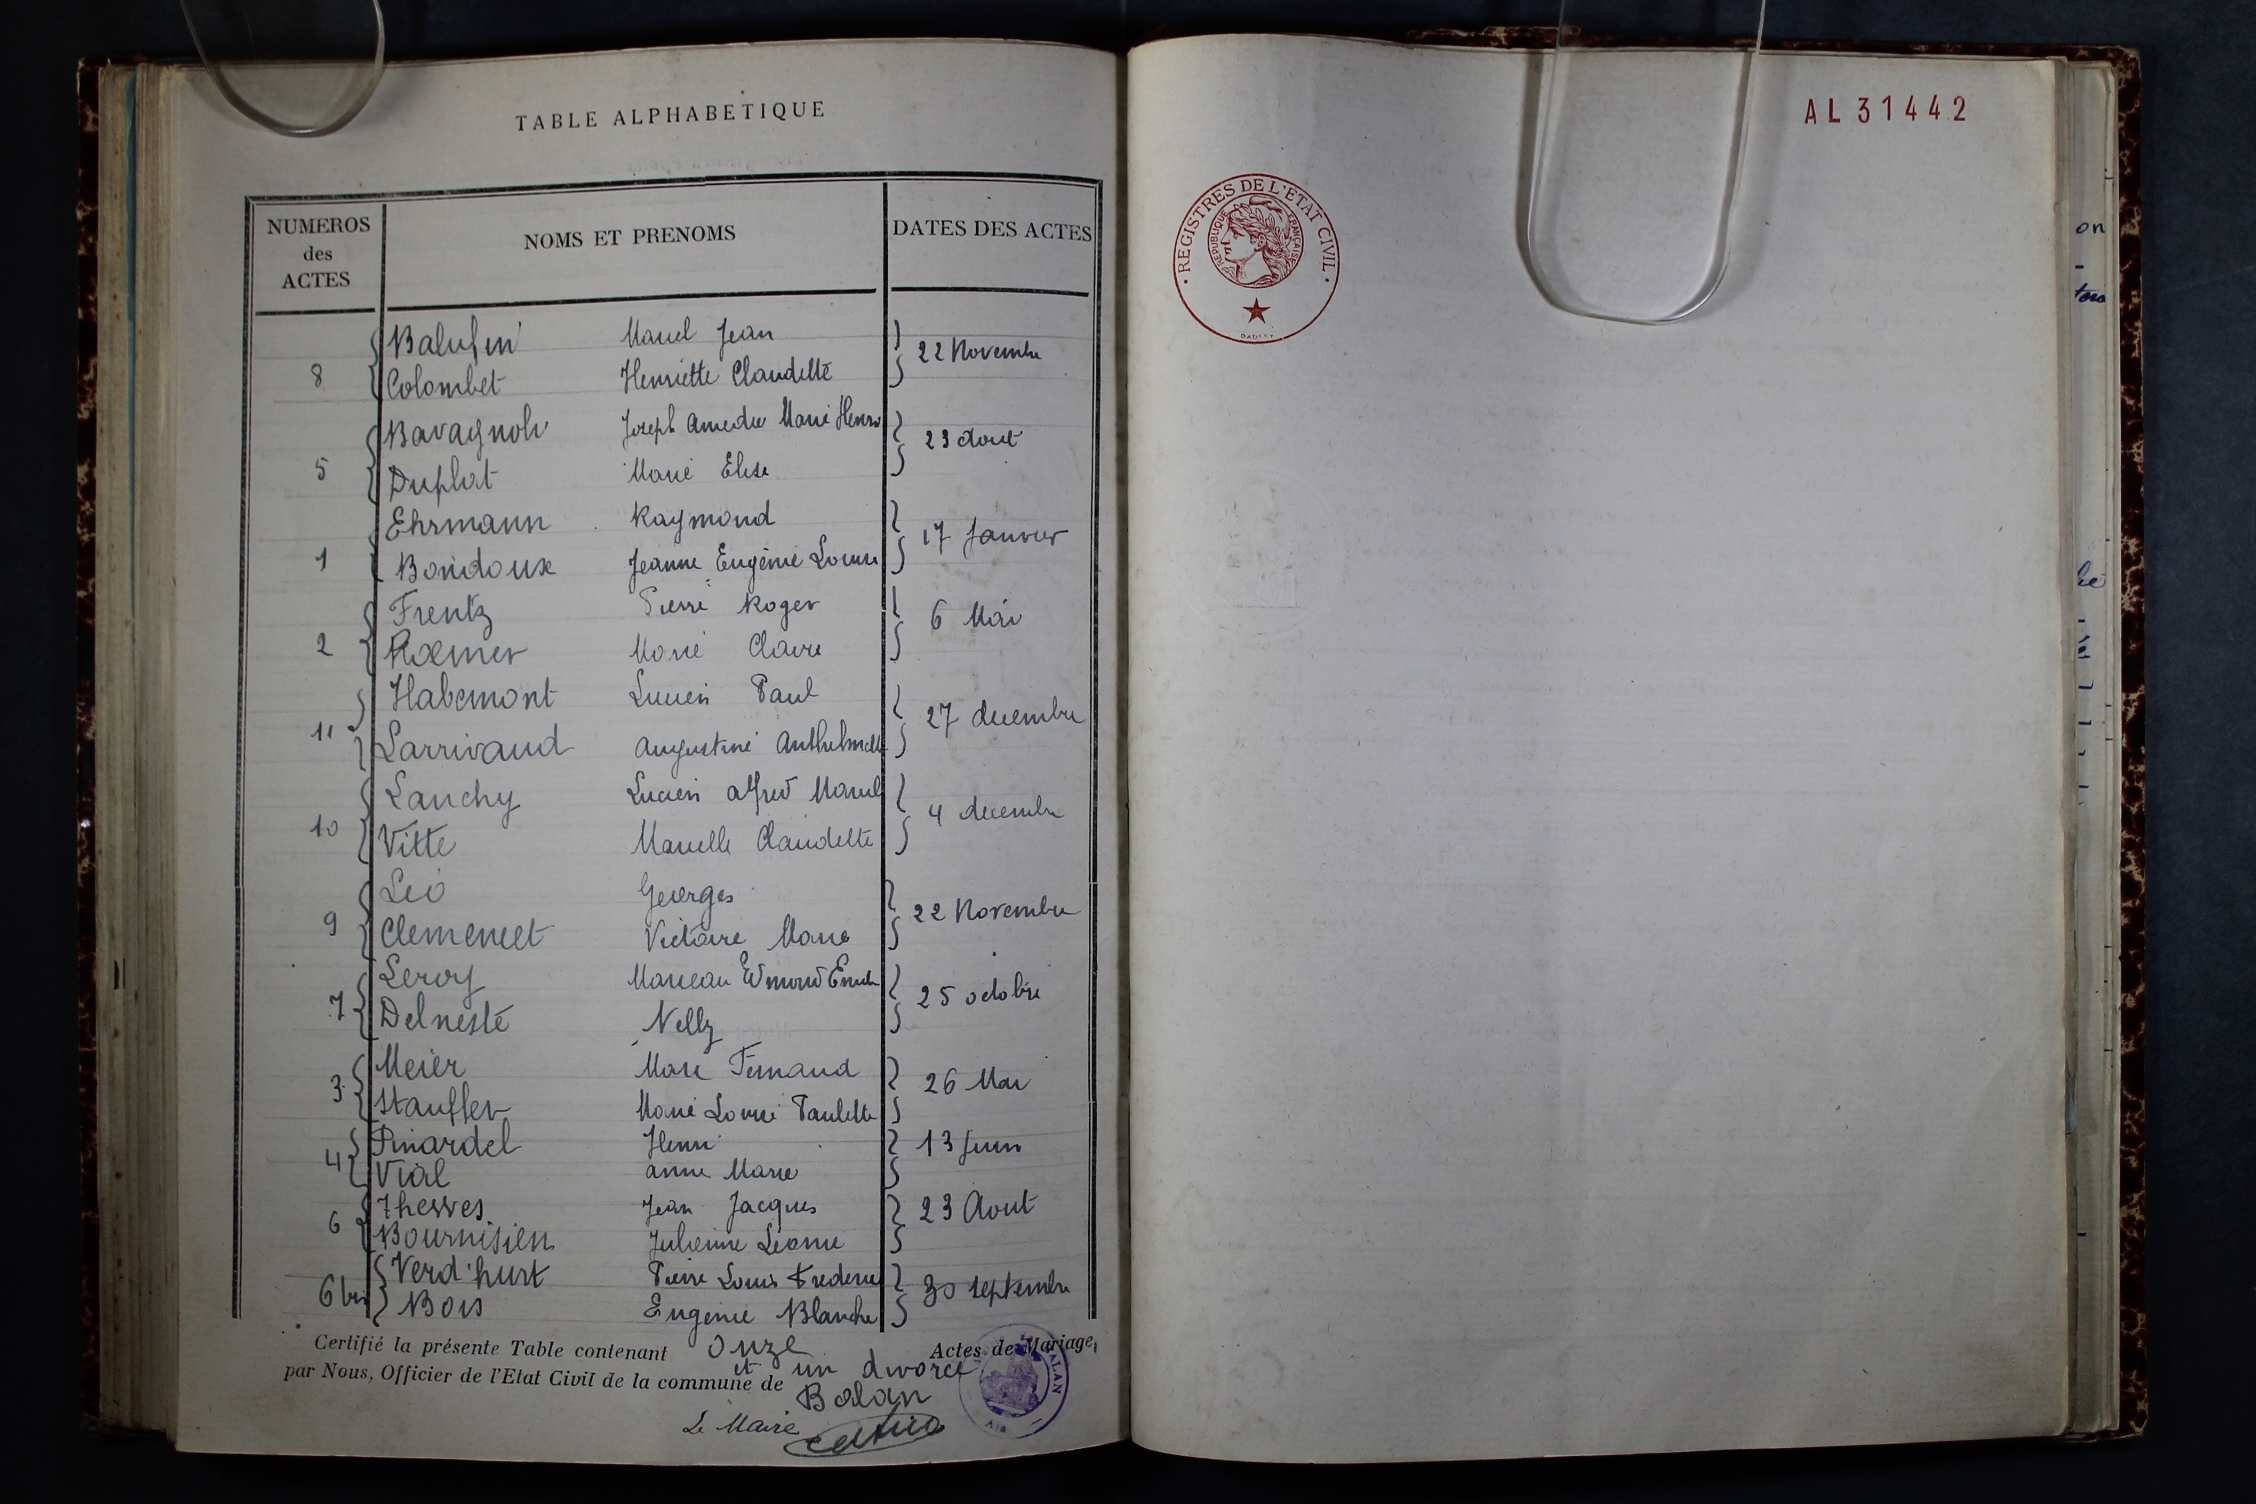 TABLE ALPHABETIQUE
NUMEROS des ACTES
NOMS ET PRENOMS
DATES DES ACTES
Balufin Marcel Jean
8 Colombet Henriette Claudette 22 Novembre
Bavagnoli Joseph Amedee Marie Henri
5 Duplat Marie Elise 23 Aout
Ehrmann Raymond
1 Boridoux Jeanne Eugénie Louise 17 Janvier
Frentz Pierre Roger
2 Rœmer Marie Claire 6 Mai
Habemont Lucien Paul
11 Larrivaud Augustine Anthelmette 27 decembre
Lanchy Lucien Alfred Marcel
10 Vitte Marcelle Claudette 4 decembre
Leo Georges
9 Clemencet Victoire Marie 22 Novembre
Leroy Marceau Edmond Emile
7 Delneste Nelly 25 octobre
Meier Marc Fernand
3 Stauffer Marie Louise Paulette 26 Mai
Pinardel Henri
4 Vial Anne Marie 13 Juin
Therres Jean Jacques
6 Bournisien Julienne Leonie 23 Aout
Verd'hurt Pierre Louis Frederic
6 bis Bois Eugenie Blanche 30 septembre
Certifié la présente Table contenant onze Actes de Mariage,
et un divorce
par Nous, Officier de l'Etat Civil de la commune de Balan
Le Maire
BALAN
AIN
AL 31442
REGISTRES DE L'ETAT CIVIL
REPUBLIQUE FRANÇAISE